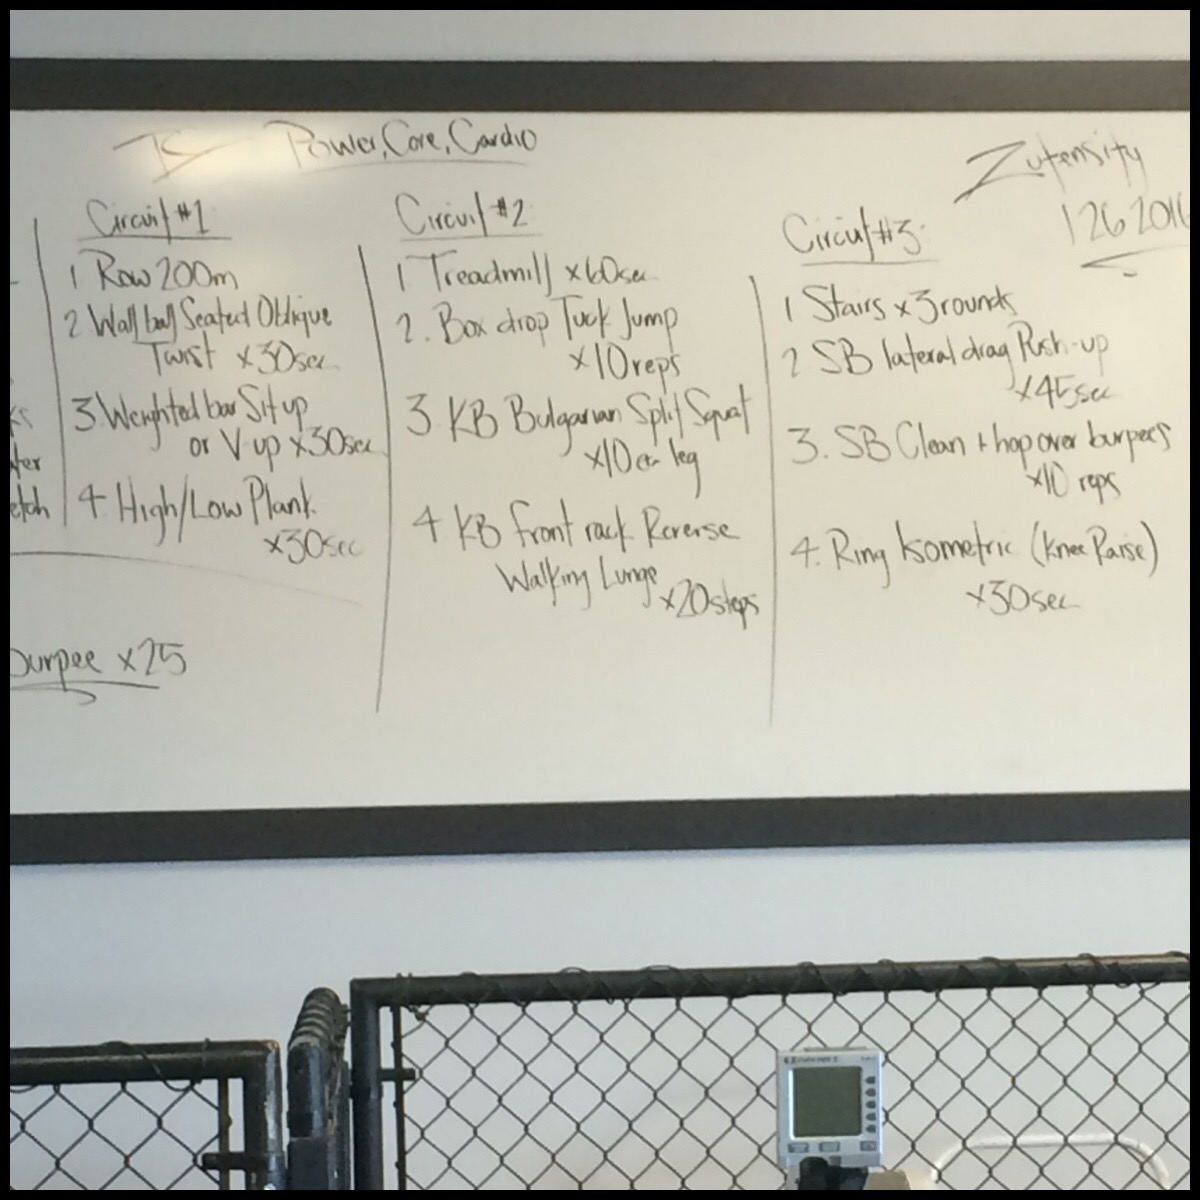 TS Power, Core, Cardio
Zutensity
1 26 2016
Circuit #1
1 Row 200m
2 Wall ball Seated Oblique
Twist x30sec
3. Weighted bar Sit up
or V-up x30sec
4. High/Low Plank
x30sec
Circuit #2
1 Treadmill x60sec
2. Box drop Tuck Jump
x10reps
3. KB Bulgarian Split Squat
x10 ea leg
4 KB front rack Reverse
Walking Lunge
x20steps
Circuit #3
1 Stairs x 3rounds
2 SB lateral drag Push-up
x45sec
3. SB Clean + hop over burpees
x10 reps
4. Ring Isometric (Knee Raise)
x30sec
burpee x25